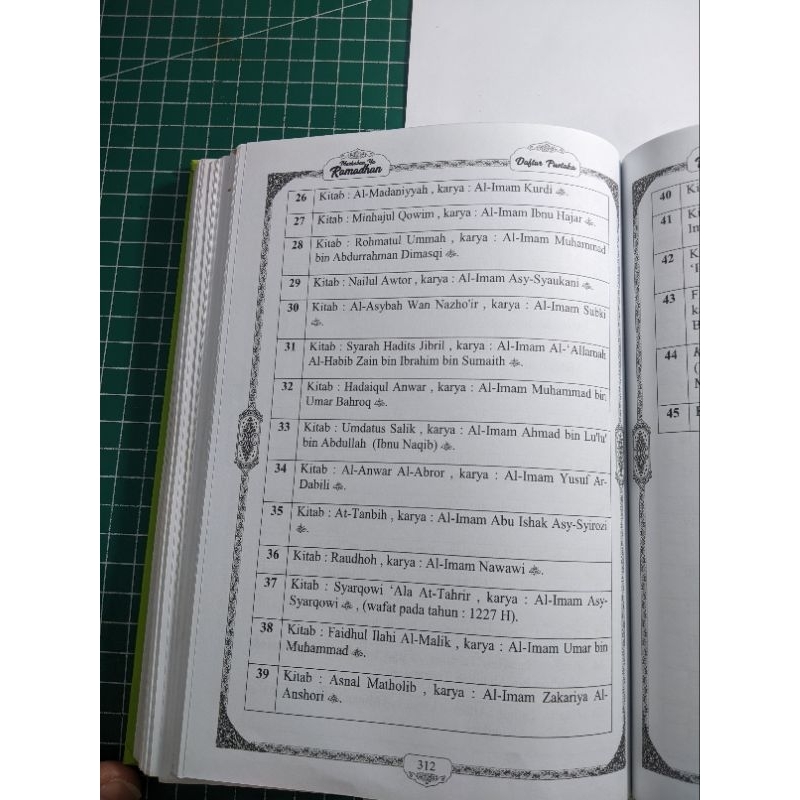 Marhaban Ya
Ramadhan
Daftar Pustaka
26 Kitab : Al-Madaniyyah , karya : Al-Imam Kurdi
27 Kitab : Minhajul Qowim , karya : Al-Imam Ibnu Hajar
28 Kitab : Rohmatul Ummah , karya : Al-Imam Muhammad
bin Abdurrahman Dimasqi ﷫.
29 Kitab : Nailul Awtor , karya : Al-Imam Asy-Syaukani ﷫.
30 Kitab : Al-Asybah Wan Nazho'ir , karya : Al-Imam Subki
﷫.
31 Kitab : Syarah Hadits Jibril , karya : Al-Imam Al-‘Allamah
Al-Habib Zain bin Ibrahim bin Sumaith ﷫.
32 Kitab : Hadaiqul Anwar , karya : Al-Imam Muhammad bin
Umar Bahroq ﷫.
33 Kitab : Umdatus Salik , karya : Al-Imam Ahmad bin Lu'lu'
bin Abdullah (Ibnu Naqib) ﷫.
34 Kitab : Al-Anwar Al-Abror , karya : Al-Imam Yusuf Ar-
Dabili ﷫.
35 Kitab : At-Tanbih , karya : Al-Imam Abu Ishak Asy-Syirozi
﷫.
36 Kitab : Raudhoh , karya : Al-Imam Nawawi ﷫.
37 Kitab : Syarqowi ‘Ala At-Tahrir , karya : Al-Imam Asy-
Syarqowi ﷫ , (wafat pada tahun : 1227 H).
38 Kitab : Faidhul Ilahi Al-Malik , karya : Al-Imam Umar bin
Muhammad ﷫.
39 Kitab : Asnal Matholib , karya : Al-Imam Zakariya Al-
Anshori ﷫.
312
40
41
42
43
44
45